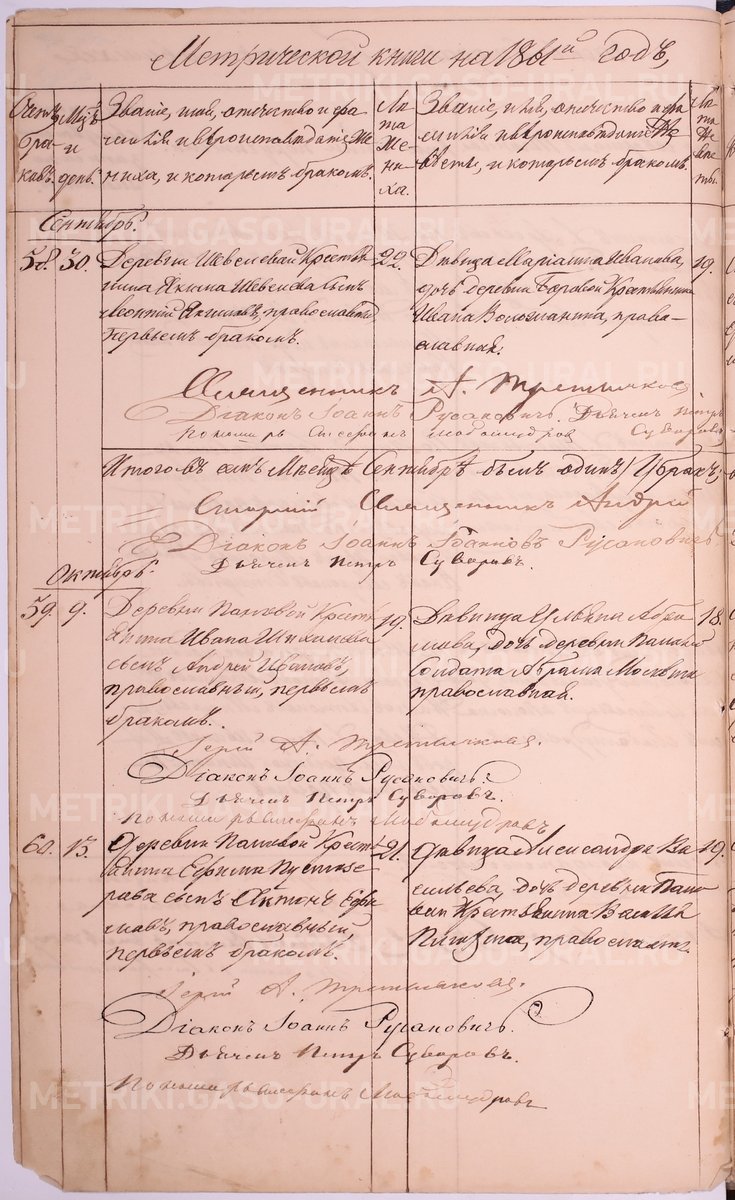 Метрической книги на 1861й годъ,
Счетъ браковъ.
Мцъ и день.
Званіе, имя, отечество и фамилія и вѣроисповѣданіе Жениха, и которымъ бракомъ.
Лѣта Жениха.
Званіе, имя, отечество и фамилія и вѣроисповѣданіе Невѣсты, и которымъ бракомъ.
Лѣта Невѣсты.
Сентябрь.
58. 30.
Деревни Шевелевой Крестья-
нина Якима Шевелева сынъ
Леонтій Якимовъ, православный
первымъ бракомъ.
22.
Дѣвица Маріамна Иванова,
дочь деревни Боровой Крестьянина
Ивана, право-
славная.
19.
Священникъ А. Третьяковъ
Діаконъ Іоаннъ Русановичъ. Дьячекъ Петръ
Суворовъ
Пономарь
Итого въ семъ Мѣсяцѣ Сентябрѣ былъ одинъ 1 бракъ;
Старшій Священникъ Андрей
Діаконъ Іоаннъ Іоанновъ Русановичъ
Дьячекъ Петръ Суворовъ.
Октябрь.
59. 9.
Деревни Крестья-
нина Ивана
сынъ Андрей Ивановъ,
православный, первымъ
бракомъ.
19.
Дѣвица Ульяна Абра-
мова, дочь деревни
Солдата Абрама Москвина
православная.
18.
Іерей А. Третьяковъ.
Діаконъ Іоаннъ Русановичъ.
Дьячекъ Петръ Суворовъ.
Пономарь Любомудровъ
60. 15.
Деревни Крестья-
нина Ефима Пустозе-
рова сынъ Антонъ Ефи-
мовъ, православный,
первымъ бракомъ.
21.
Дѣвица Александра Ва-
сильева, дочь деревни
Крестьянина Василья
православная.
19.
Іерей А. Третьяковъ.
Діаконъ Іоаннъ Русановичъ.
Дьячекъ Петръ Суворовъ.
Пономарь Любомудровъ
METRIKI.GASO-URAL.RU